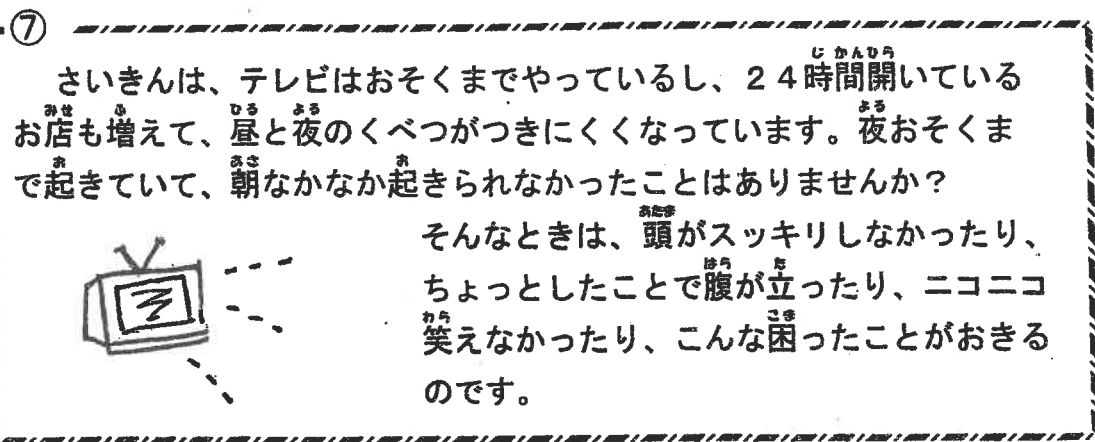 ⑦
さいきんは、テレビはおそくまでやっているし、24時間開いている
お店も増えて、昼と夜のくべつがつきにくくなっています。夜おそくま
で起きていて、朝なかなか起きられなかったことはありませんか?
そんなときは、頭がスッキリしなかったり、
ちょっとしたことで腹が立ったり、ニコニコ
笑えなかったり、こんな困ったことがおきる
のです。